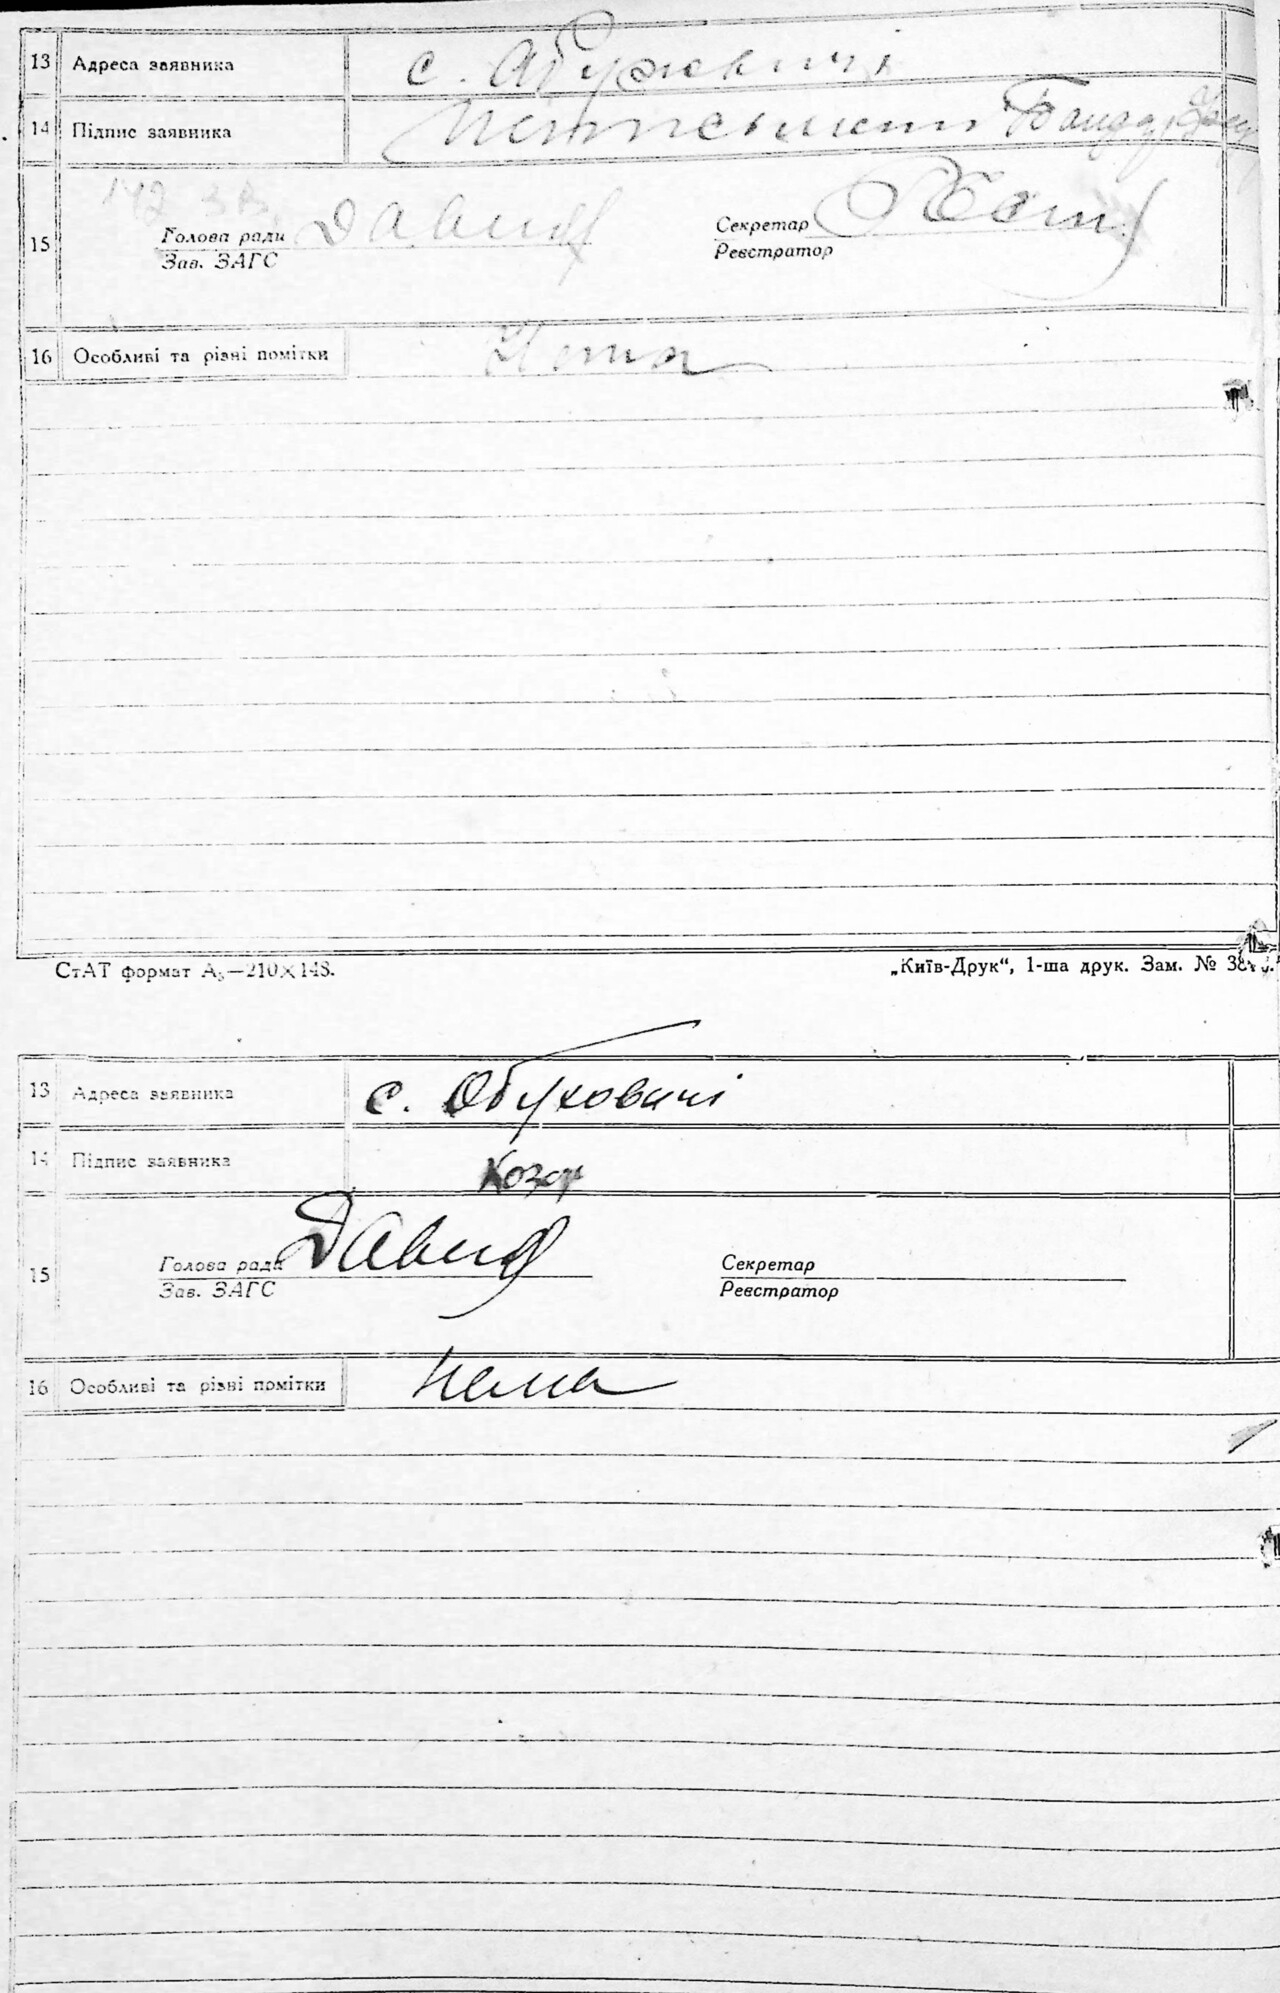 13 Адреса заявника с. Абуховичі
14 Підпис заявника
15 Голова ради Давид Секретар
Зав. ЗАГС Реєстратор
16 Особливі та різні помітки Нема
СтАТ формат А₅—210×148. „Київ-Друк“, 1-ша друк. Зам. №
13 Адреса заявника с. Обуховичі
14 Підпис заявника Козор
15 Голова ради Давид Секретар
Зав. ЗАГС Реєстратор
16 Особливі та різні помітки Нема